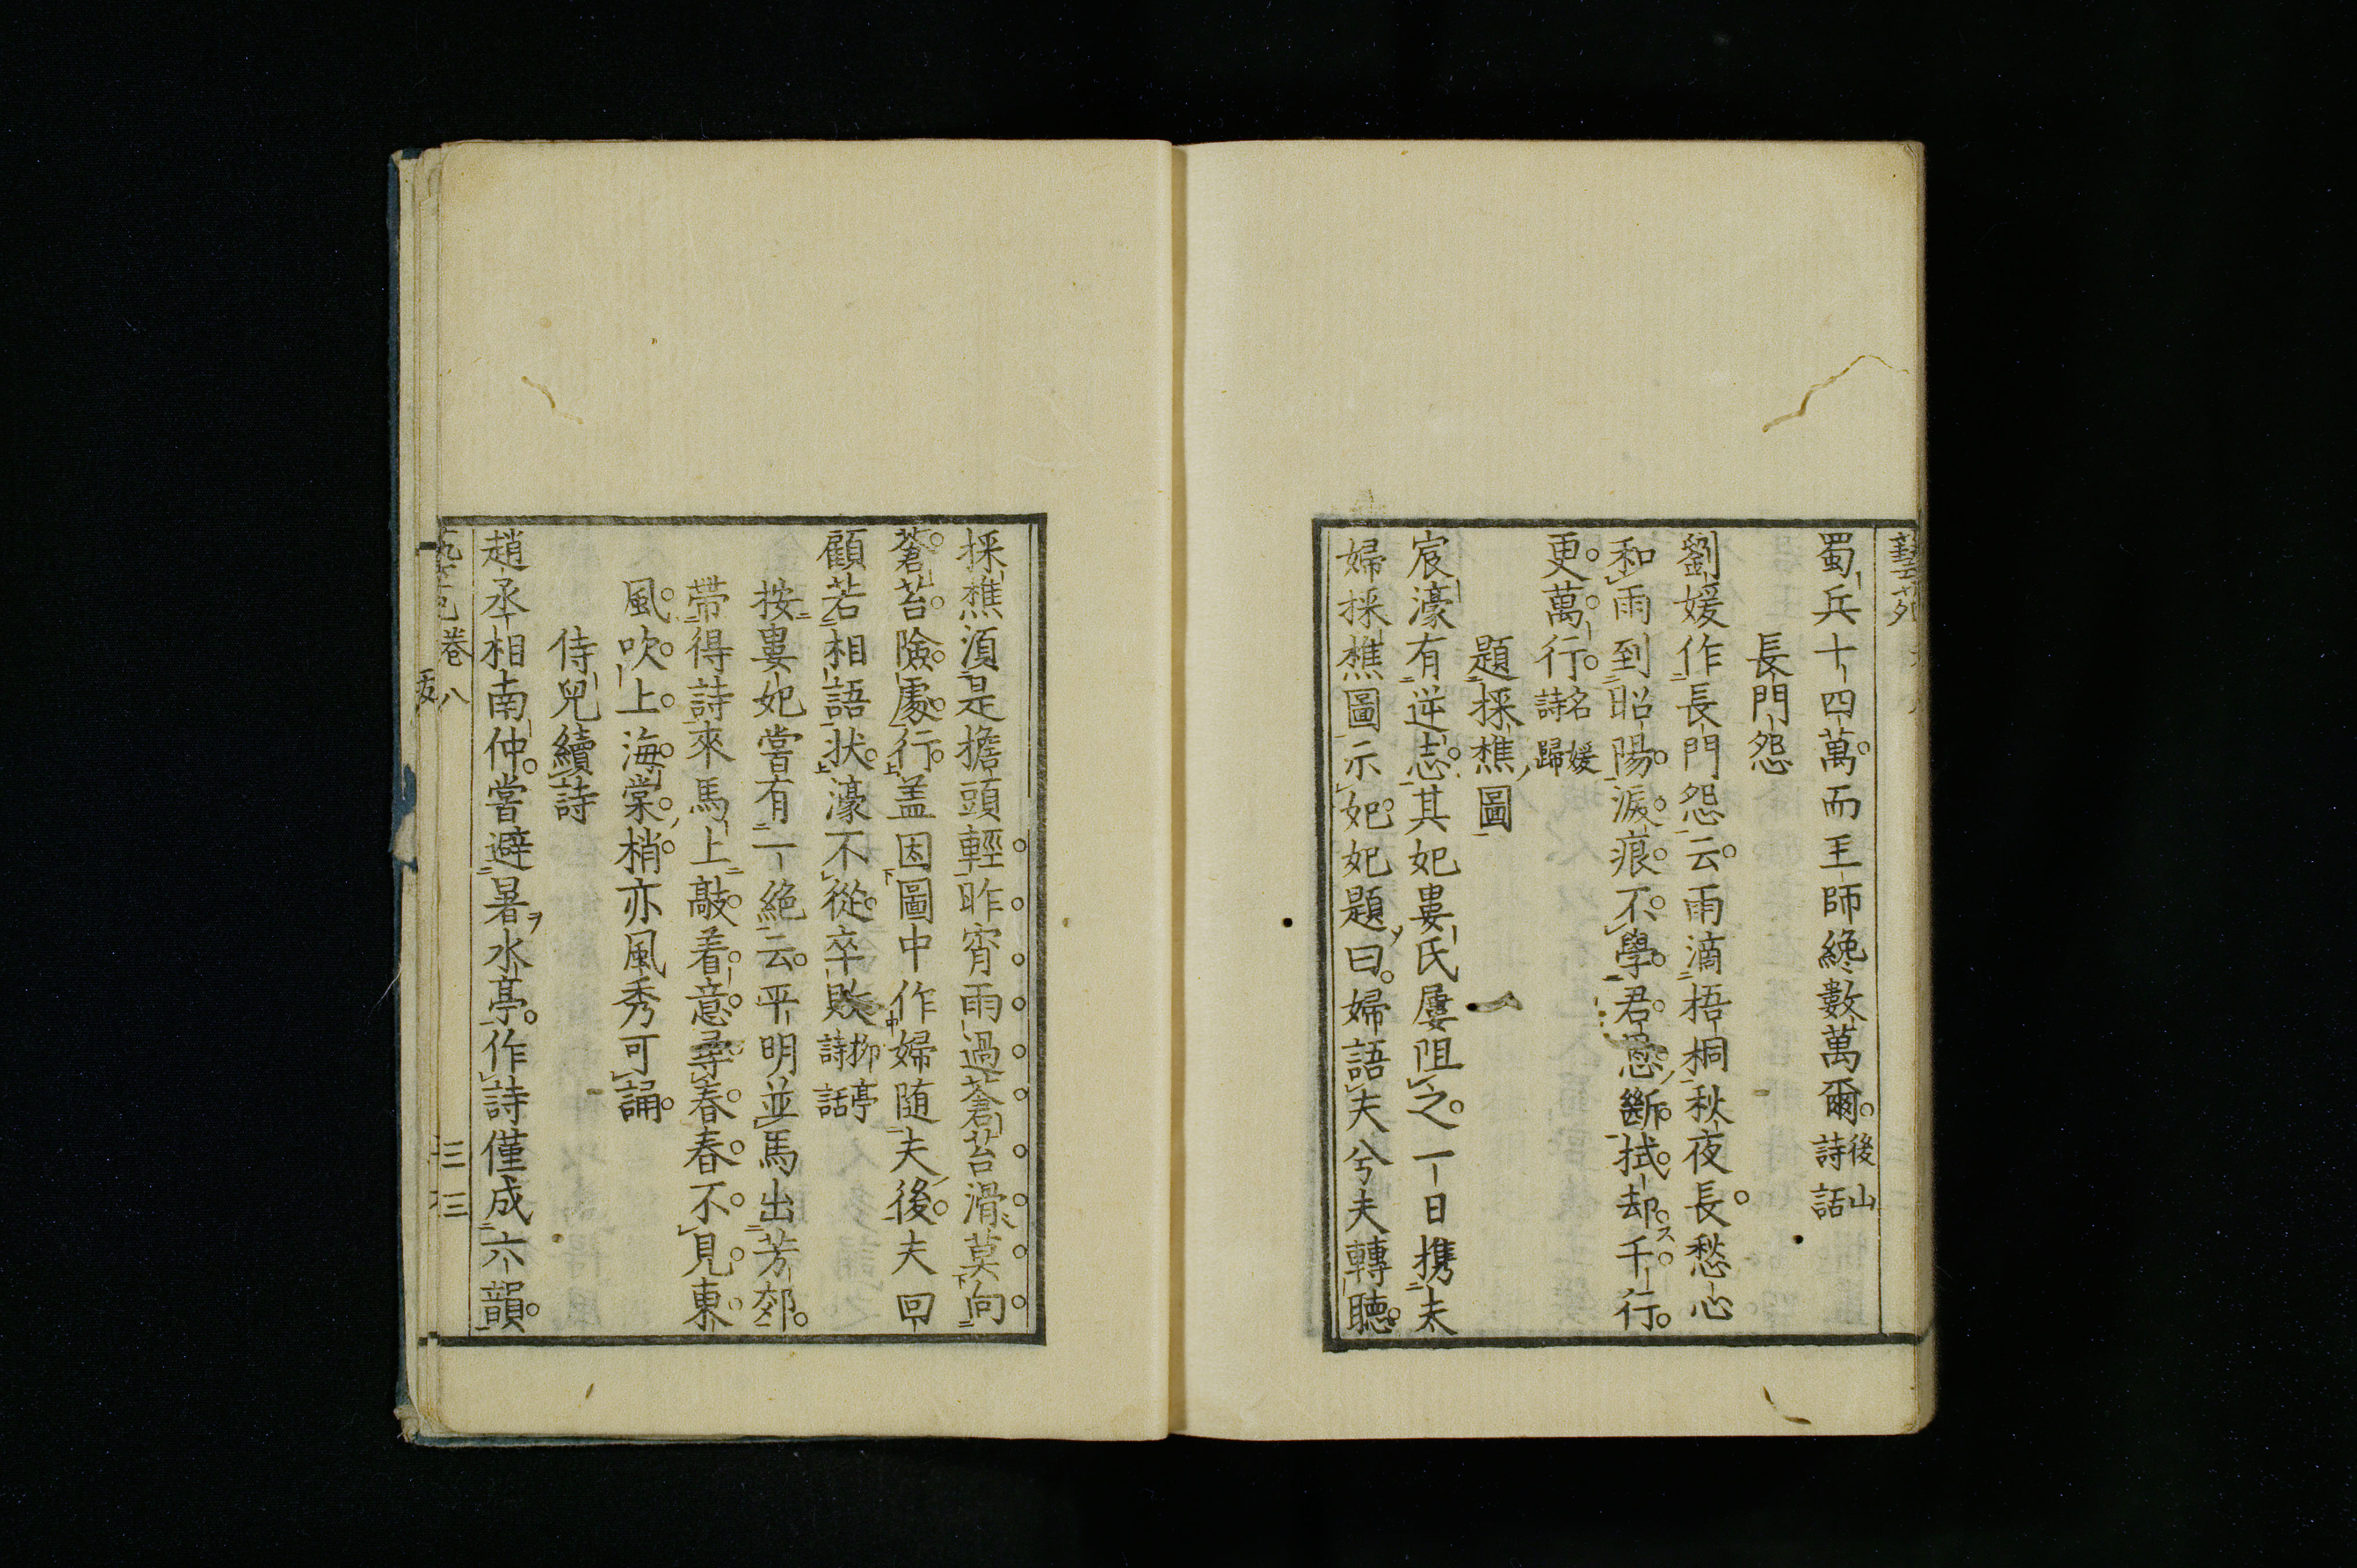 蜀兵十四萬而王師纔數萬爾後山詩話
長門怨
劉媛作長門怨云雨滴梧桐秋夜長愁心
和雨到昭陽淚痕不學君恩斷拭却千行
更萬行名媛詩歸
題採樵圖
宸濠有逆志其妃婁氏屢阻之一日携夫
婦採樵圖示妃妃題曰婦語夫兮夫轉聽
採樵須是擔頭輕昨宵雨過蒼苔滑莫向
蒼苔險處行盖因圖中作婦随夫後夫回
顧若相語狀濠不從卒敗抑亭詩話
按婁妃嘗有一絕云平明並馬出芳郊
帶得詩來馬上敲着意尋春春不見東
風吹上海棠梢亦風秀可誦
侍兒續詩
趙丞相南仲嘗避暑水亭作詩僅成六韻
卷八
三三